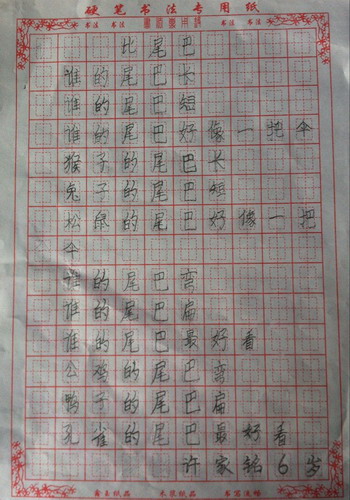 硬笔书法专用纸
书法 书法 书法 书法
比尾巴
谁的尾巴长
谁的尾巴短
谁的尾巴好像一把伞
猴子的尾巴长
兔子的尾巴短
松鼠的尾巴好像一把
伞
谁的尾巴弯
谁的尾巴扁
谁的尾巴最好看
公鸡的尾巴弯
鸭子的尾巴扁
孔雀的尾巴最好看
许家铭6岁